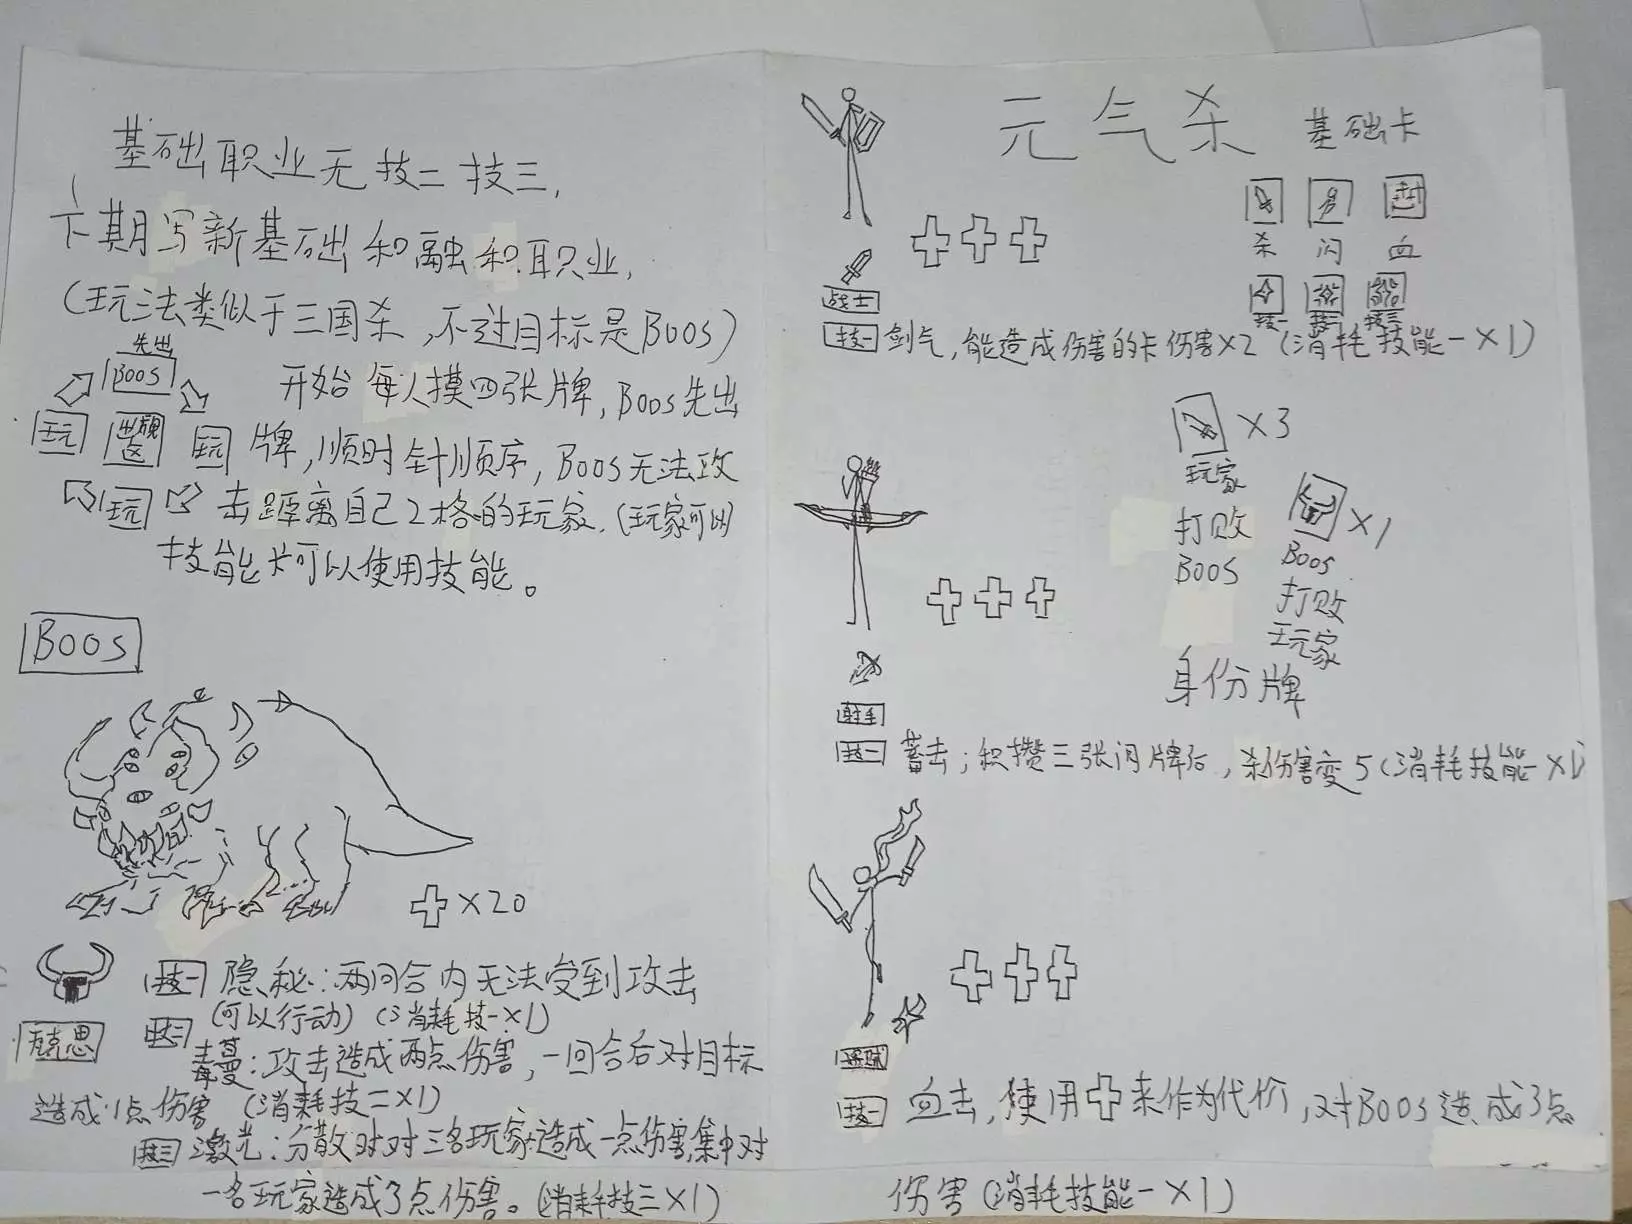 基础职业无技二技三,
下期写新基础和融和职业,
(玩法类似于三国杀,不过目标是BOOS)
先出
BOOS
玩
出现区
玩
玩
开始每人摸四张牌,BOOS先出
牌,顺时针顺序,BOOS无法攻
击距离自己2格的玩家.(玩家可以)
技能卡可以使用技能。
BOOS
×20
克思
技一 隐秘:两回合内无法受到攻击
(可以行动)(消耗技一×1)
技二
毒蔓:攻击造成两点伤害,一回合后对目标
造成1点伤害(消耗技二×1)
技三 激光:分散对对三名玩家造成一点伤害,集中对
一名玩家造成了点伤害。(消耗技三×1)
元气杀 基础卡
杀 闪 血
技一 技二 技三
战士
技一 剑气,能造成伤害的卡伤害×2(消耗技能一×1)
×3
玩家
打败
BOOS
×1
BOOS
打败
玩家
身份牌
射手
技一 蓄击;积攒三张闪牌后,杀伤害变5(消耗技能一×1)
技一 血击,使用 来作为代价,对BOOS造成3点
伤害(消耗技能一×1)